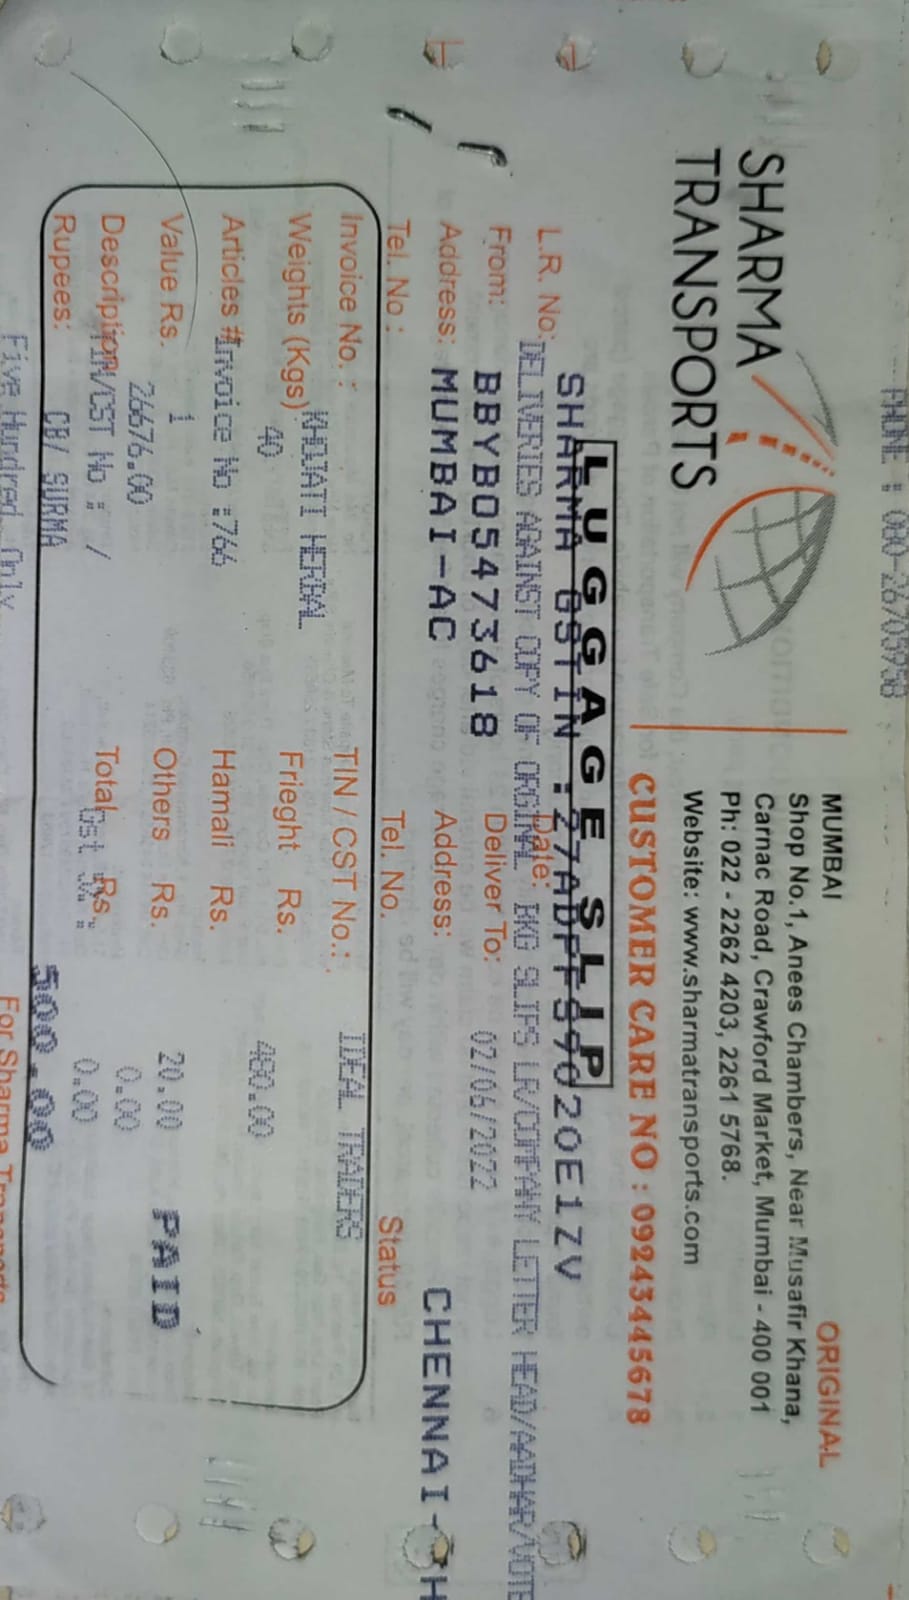 PHONE : 080-26705958
ORIGINAL
SHARMA
TRANSPORTS
MUMBAI
Shop No.1, Anees Chambers, Near Musafir Khana,
Carnac Road, Crawford Market, Mumbai - 400 001
Ph: 022 - 2262 4203, 2261 5768.
Website: www.sharmatransports.com
CUSTOMER CARE NO : 09243445678
LUGGAGE SLIP
SHARMA GSTIN :27ADPFS9020E1ZV
L.R. No: Date:
DELIVERIES AGAINST COPY OF ORGINAL BKG SLIPS LR/COMPANY LETTER HEAD/AADHAR/VOTE
From: BBYB05473618 Deliver To: 02/06/2022
Address: MUMBAI-AC Address: CHENNAI-
Tel. No : Tel. No. Status
Invoice No. : KHOJATI HERBAL TIN / CST No.: IDEAL TRADERS
Weights (Kgs) 40 Frieght Rs. 480.00
Articles # Invoice No :766 Hamali Rs.
Value Rs. 1 Others Rs. 20.00 PAID
26676.00 0.00
Description TIN/CST No : / Total Rs. Gst 0.00
Rupees: CB/ SURMA 500.00
Five Hundred Only
For Sharma Transports